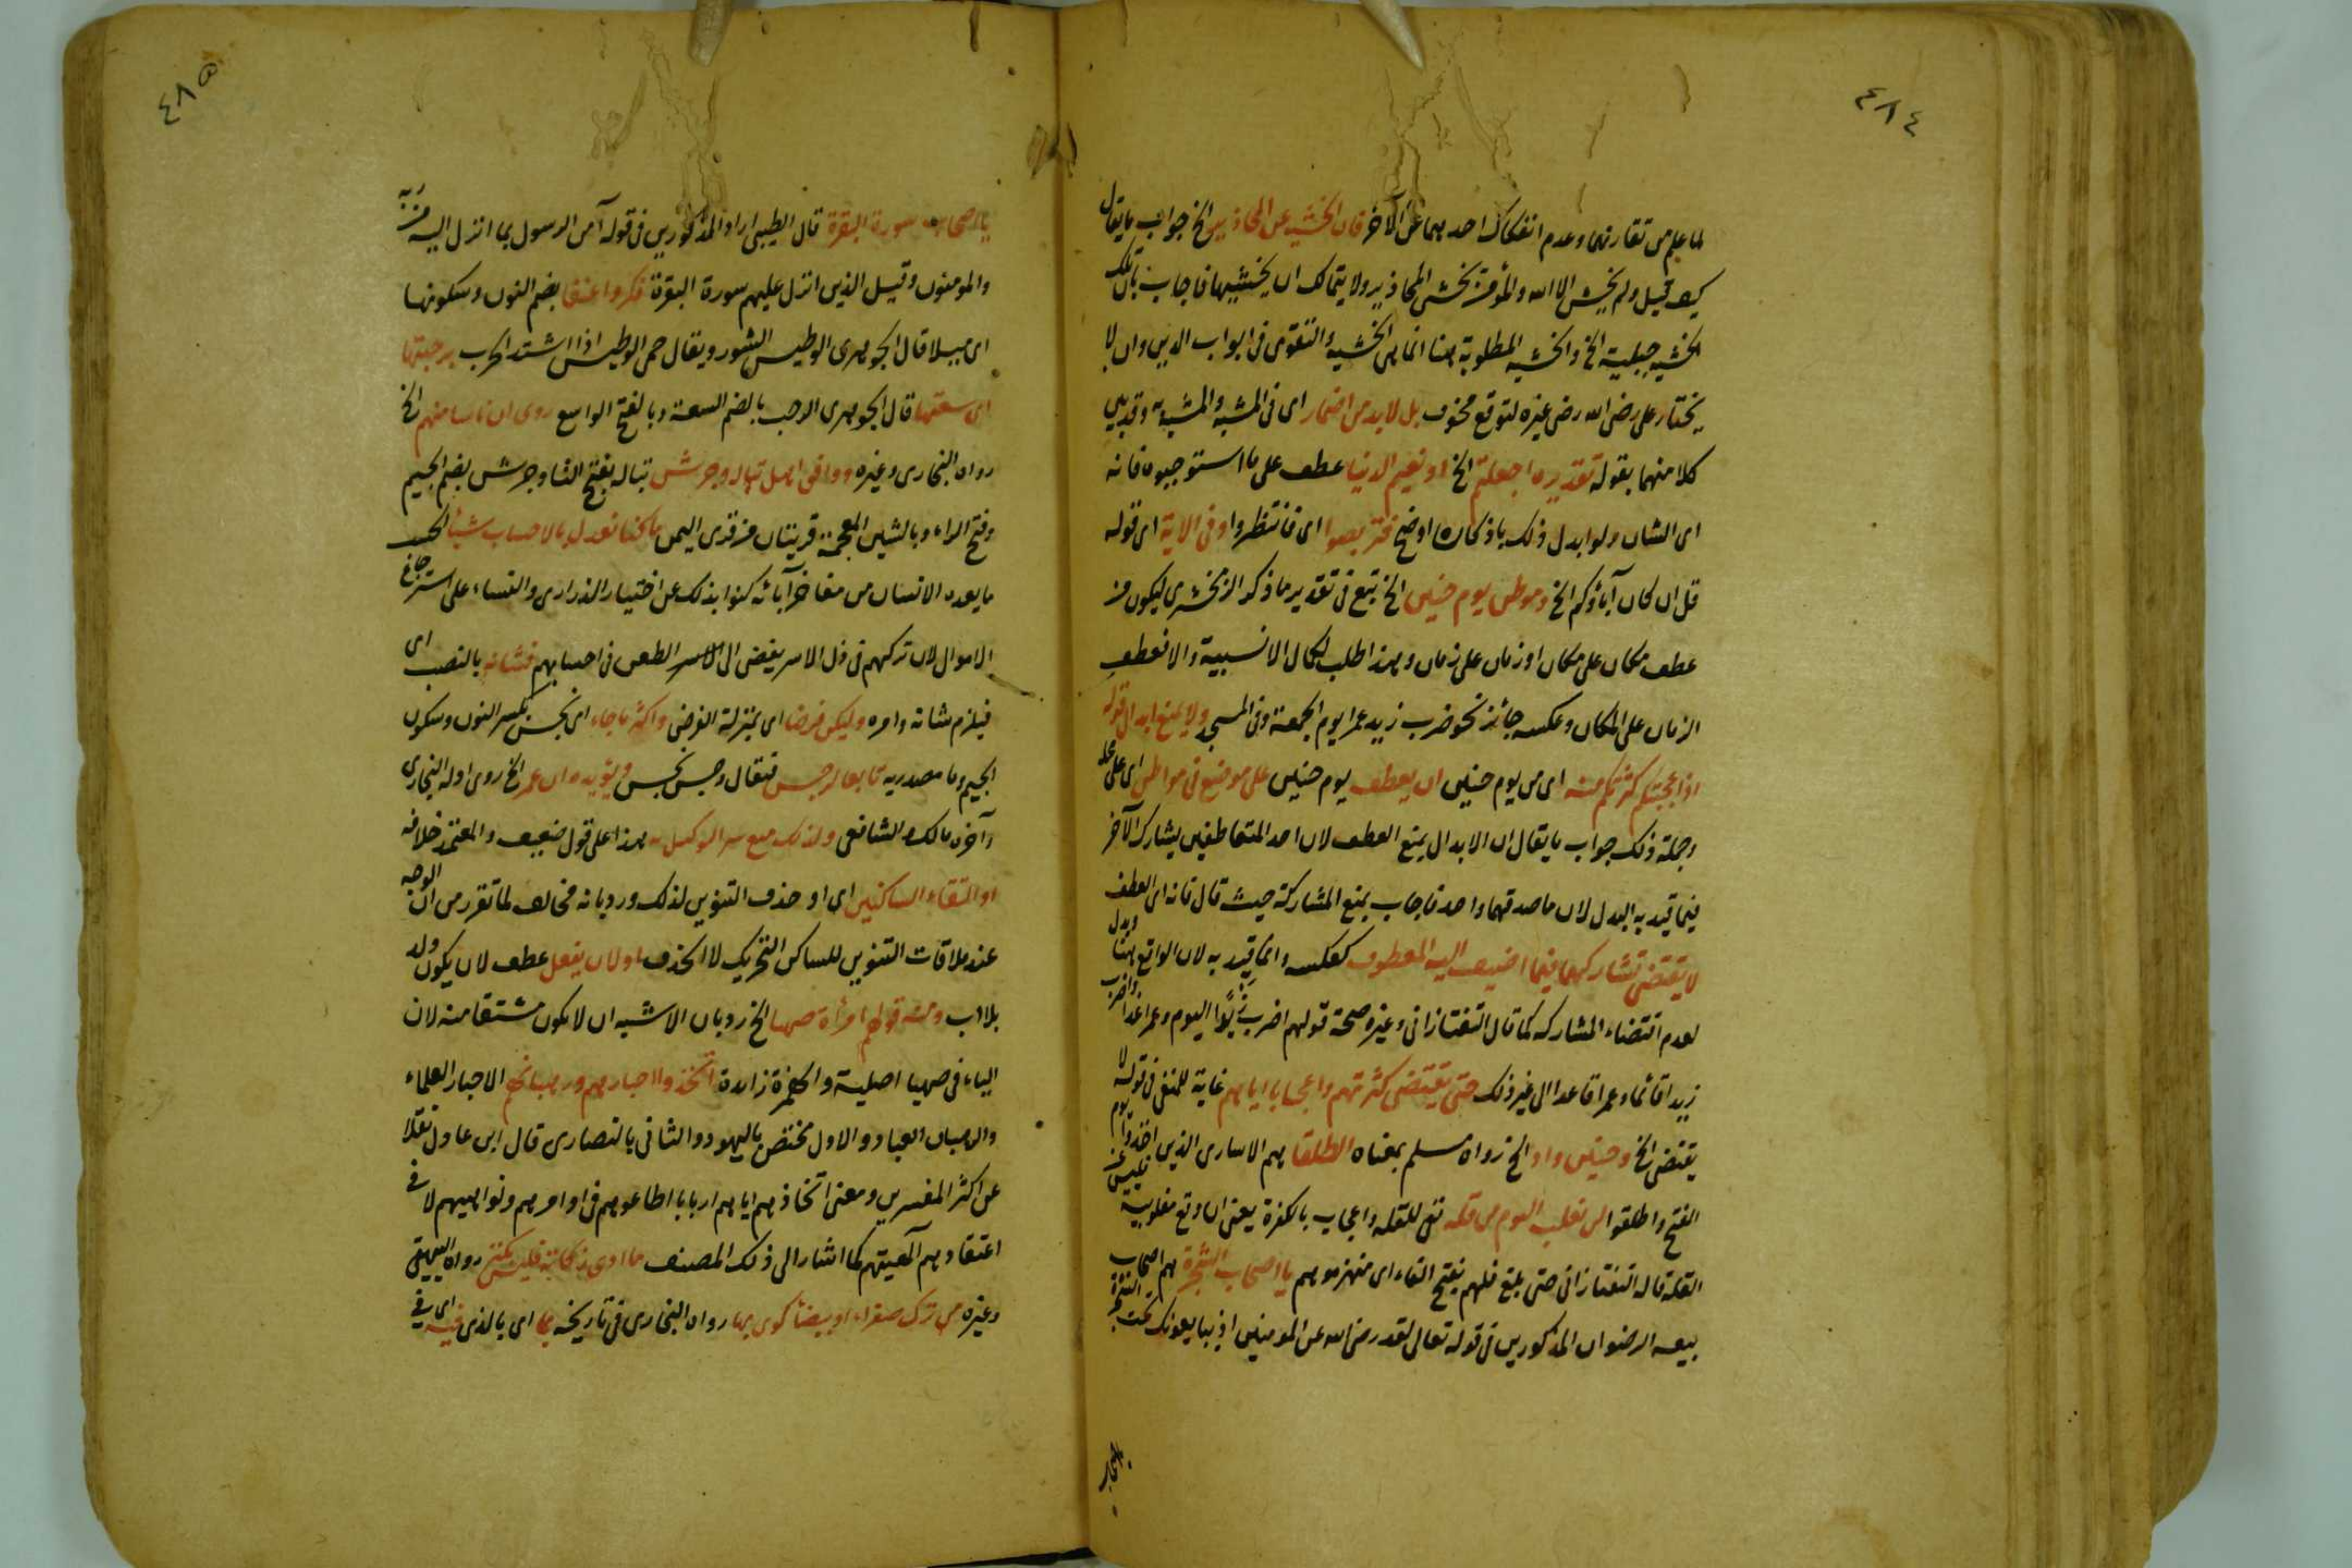 ٤٨٤
لما علم من تقارنهما وعدم انفكاك احدهما عن الآخر فان الخشية عن المحاذير الخ جواب ما يقال
كيف قيل ولم يخش الا الله والمؤمن يخشى المحاذير ولا يتمالك ان يخشيها فاجاب بان تلك
الخشية جبلية الخ والخشية المطلوبة هنا انما هى الخشية والتقوى فى ابواب الدين وان لا
يختار على رضى الله رضى غيره لتوقع مخوف بل لابد من اضمار اى فى المشبه او المشبه به وقد بين
كلا منهما بقوله تقديره اجعلتم الخ او نعيم الدنيا عطف على ما استوجبوه فانه
اى الشان ولو ابدل ذلك باذ كان اوضح فتربصوا اى فانتظروا وفى الاية اى قوله
قل ان كان آباؤكم الخ وموطن يوم حنين الخ تبع فى تقدير ما ذكر الزمخشرى ليكون من
عطف مكان على مكان او زمان على زمان وهذا طلب لكمال الانسبية والا فعطف
الزمان على المكان وعكسه جائز نحو ضرب زيد عمرا يوم الجمعة وفى المسجد ولا يمنع ابدال قوله
اذ اعجبتكم كثرتكم منه اى من يوم حنين ان يعطف يوم حنين على موضع فى مواطن اى على محله
وجملة ذلك جواب ما يقال ان الابدال يمنع العطف لان احد المتعاطفين يشارك الآخر
فيما قيد به البدل لان ما صدقهما واحد فاجاب بمنع المشاركة حيث قال فانه اى العطف
لا يقتضى تشاركهما فيما اضيف اليه المعطوف كعكسه وانما قيد به لان الواقع هنا وبدل
لعدم اقتضاء المشاركه كما قال التفتازانى وغيره صحة قولهم اضرب زيدا اليوم وعمرا غدا واضرب
زيدا قائما وعمرا قاعدا الى غير ذلك حتى يقتضى كثرتهم واعجابها اياهم غاية للمنفى فى قوله لا
يقتضى الخ وحنين واد الخ رواه مسلم بمعناه الطلقا هم الاسارى الذين اخذوا يوم
الفتح واطلقوا لن نغلب اليوم من قلة نفى للقلة واعجاب بالكثرة يعنى ان وقع مغلوبية
القلة قاله التفتازانى حتى بلغ فلهم بفتح الفاء اى منهزموهم يا اصحاب الشجرة هم اصحاب
بيعه الرضوان المذكورين فى قوله تعالى لقد رضى الله عن المومنين اذ يبايعونك تحت الشجرة
٤٨٥
يا اصحاب سورة البقرة قال الطيبى اراد المذكورين فى قوله آمن الرسول بما انزل اليه من ربه
والمومنون وقيل الذين انزل عليهم سورة البقرة فكروا عنقا بضم النون وسكونها
اى ميلا قال الجوهرى الوطيس التنور ويقال حمى الوطيس اذا اشتد الحرب برحبتها
اى سعتها قال الجوهرى الرحب بالضم السعة وبالفتح الواسع روى ان ناسا منهم الخ
رواه البخارى وغيره ووافى اهل تباله وجرش تباله بفتح التا وجرش بضم الجيم
وفتح الراء وبالشين المعجمة قريتان من قرى اليمن ما كنا نعدل بالاحساب شيئا الحسب
ما يعده الانسان من مفاخر آبائه كنوا بذلك عن اختيار الذرارى والنساء على استرجاع
الاموال لان تركهم فى ذل الاسر يفضى الى الطعن فى احسابهم فشانه بالنصب اى
فيلزم شانه وامره وليكن قرضا اى بمنزلة القرض واكثر ما جاء اى نجس بكسر النون وسكون
الجيم وما مصدريه تابعا لرجس فيقال رجس نجس ويؤيده ان عمر الخ روى اوله البخارى
وآخره مالك والشافعى ولذلك منع من التوكيل به هذا على قول ضعيف والمعتمد خلافه
او التقاء الساكنين اى او حذف التنوين لذلك ورد بانه مخالف لما تقرر من ان الوجه
عند ملاقات التنوين للساكن التحريك لا الحذف اولان يفعل عطف لان يكون ولد
بلا اب ومنه قولهم امرأة ضهيا الخ رد بان الاشبه ان لا يكون مشتقا منه لان
الياء فى ضهيا اصلية والهمزة زايدة اتخذوا احبارهم ورهبانهم الاحبار العلماء
والرهبان العباد والاول مختص باليهود والثانى بالنصارى قال ابن عادل نقلا
عن اكثر المفسرين ومعنى اتخاذهم اياهم اربابا اطاعوهم فى اوامرهم ونواهيهم لا فى
اعتقادهم آلهيتهم كما اشار الى ذلك المصنف ما ادى زكاته فليس بكنز رواه البيهقى
وغيره من ترك صفراء او بيضا كوى بها رواه البخارى فى تاريخه بما اى بالذى فيه اى فى